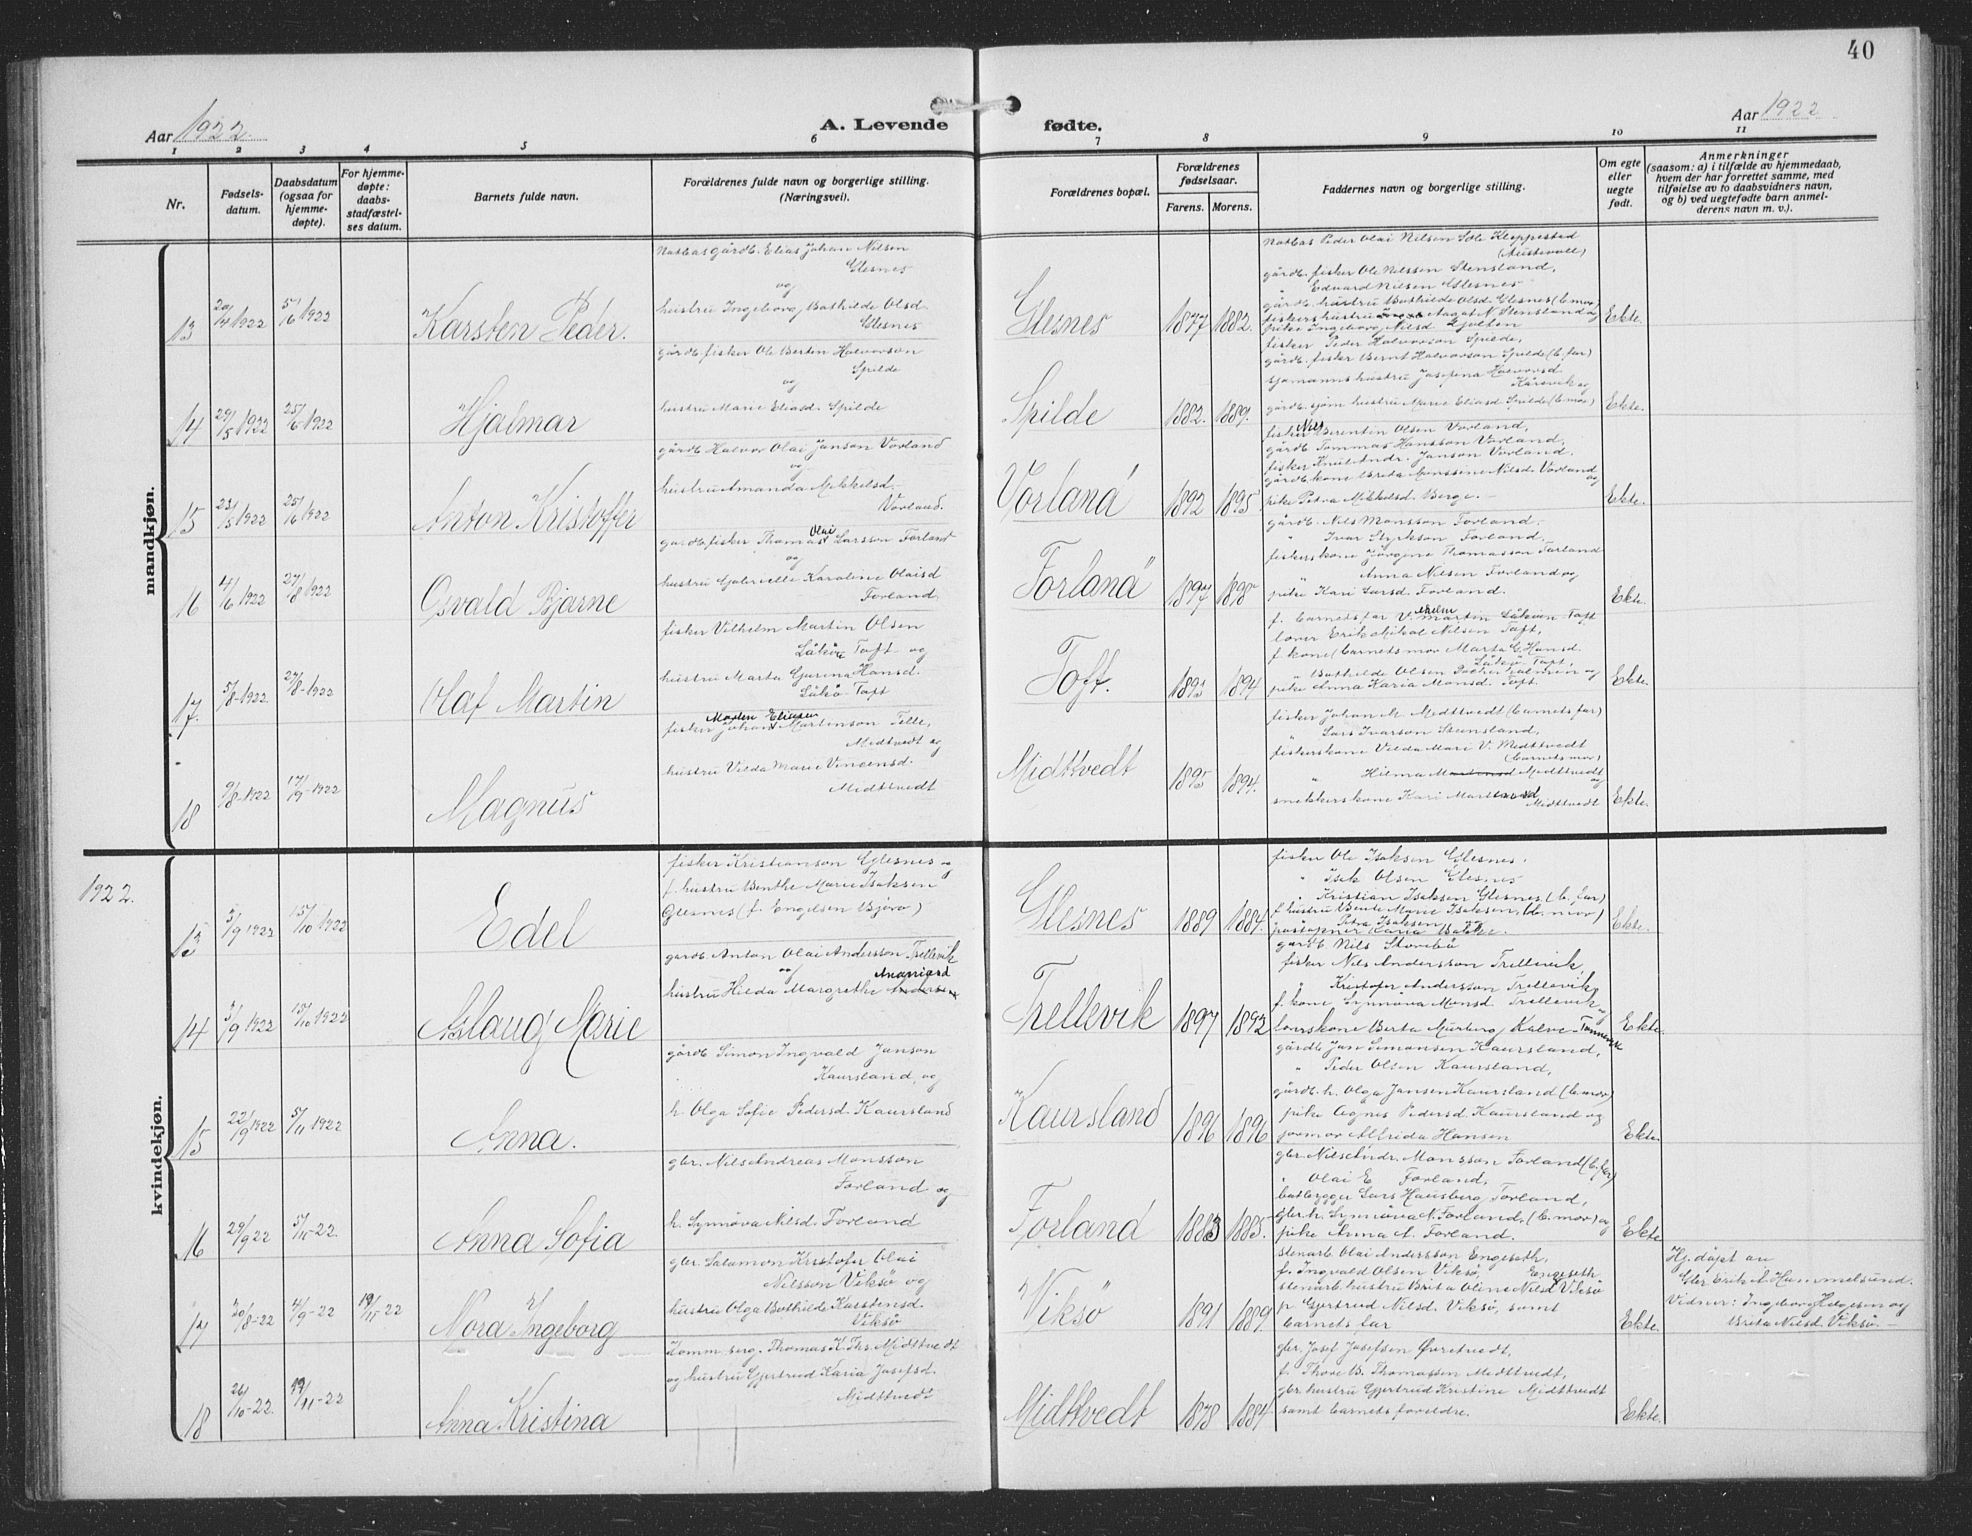 40
Aar 1922
A. Levende fødte.
Aar 1922
1 2 3 4 5 6 7 8 9 10 11
Nr.
Fødsels-
datum.
Daabsdatum
(ogsaa for
hjemme-
døpte).
For hjemme-
døpte:
daabs-
stadfæstel-
ses datum.
Barnets fulde navn.
Forældrenes fulde navn og borgerlige stilling.
(Næringsvei).
Forældrenes bopæl.
Forældrenes
fødselsaar.
Farens. Morens.
Faddernes navn og borgerlige stilling.
Om egte
eller
uegte
født.
Anmerkninger
(saasom: a) i tilfælde av hjemmedaab,
hvem der har forrettet samme, med
tilføielse av to daabsvidners navn,
og b) ved uegtefødte barn anmel-
derens navn m. v.).
mandkjøn.
13 20/4 1922 5/6 1922 Karsten Peder.
gårdb. Elias Johan Nilsen
Glesnes
og
hustru Ingeborg Bathilde Olsd
Glesnes
Glesnes 1877 1882.
Peder Olai Nilsen Kleppestad
(Austevoll)
gårdb. fisker Ole Nilssen Stensland,
" Edvard Nilsen Glesnes
gårdb. hustru Bathilde Olsd. Glesnes (b. mor)
fiskers hustru Aagat N. Stensland og
pike Ingeborg Nilsd
Ekte.
14 29/5 1922 25/6 1922 Hjalmar
gårdb. fisker Ole Berten Halvorson
Spilde
og
hustru Marie Eliasd. Spilde
Spilde 1882. 1889.
fisker Peder Halvorson Spilde,
gårdb. fisker Bernt Halvorson Spilde (b. far)
sjømanns hustru Josefena Halvorsd
Kårevik og
gårdb. sjøm hustru Marie Eliasd Spilde (b. mor)
Ekte.
15 23/5 1922 25/6 1922 Anton Kristoffer
gårdb Halvor Olai Janson Vorland
og
hustru Amanda Mikkelsd.
Vorland.
Vorland 1892 1895
fisker Nils Berenten Olsen Vorland,
gårdb. Tommas Hansson Vorland,
fisker Knut Andr. Janson Vorland.
gårdb. kone Brita Monssine Nilsd. Vorland
og
pike Petra Mikkelsd. Berge.
Ekte.
16 4/6 1922 27/8 1922 Osvald Bjarne
gårdb. fisker Thomas Olai Larsson Forland
og
hustru Gabrielle Karoline Olaisd
Forland.
Forland 1897 1898
gårdb. Nils Monsson Forland.
" Ivar Styrkson Forland.
fiskerskone Jørgine Thomasson Forland
" Anna Nilsen Forland og
pike Kari Larsd. Forland.
Ekte.
17. 5/8-1922. 27/8-1922 Olaf Martin
fisker Vilhelm Martin Olsen
Låkøn Toft og
hustru Marta Gurina Hansd.
Låkø Toft
Toft. 1893 1894
f. barnets far Vilhelm Martin Låkøn Toft
Erik Mikal Nilsen Toft,
f. kone (barnets mor Marta G. Hansd.
Låkø Toft,
" Bathilde Olsen og
pike Anna Karia Monsd. Toft.
Ekte.
18 9/8-1922 17/9-1922 Magnus
Morten Eliasen
fisker Johan Martinson Telle,
Midttvedt og
hustru Vilda Marie Vincensd.
Midttvedt
Midttvedt 1895 1894.
fisker Johan M. Midttvedt (barnets far)
" Lars Ivarson Stensland,
fiskerskone Vilda Mari V. Midttvedt
(barnets mor)
" Hilma Martensd Midttvedt
og
snekkerskone Kari Martensd
Midttvedt
Ekte.
1922.
kvindekjøn.
13 3/9 1922 15/10 1922 Edel
fisker Kristianson Glesnes og
f. hustru Benthe Marie Isaksen
Glesnes (f. Engelsen Bjorø)
Glesnes 1889 1884.
fisker Ole Isaksen Glesnes.
" Isak Olsen Glesnes
" Kristian Isaksen Glesnes (b. far)
f. hustru Bente Marie Isaksen, (b. mor)
Petra Isaksen
Karia Bakke.
Ekte.
14 3/9 1922 15/10 1922 Aslaug Marie
gårdb. Anton Olai Andersson Trellevik
og
hustru Hilda Margrethe Andersen
Trellevik 1897 1892
gårdb Nils Storebø
fisker Nils Andersson Trellevik
" Kristofer Andersson Trellevik
f. kone Synnøva Monsd Trellevik
og
Berta Murberg, Kalve
Ekte.
15 22/9 1922 5/11 1922 Anna.
gårdb Simon Ingvald Janson
Kaursland, og
h. Olga Sofie Pedersd. Kaursland
Kaursland 1896 1896
gårdb Jan Simonsen Kaursland,
" Peder Olsen Kaursland,
gårdb. h. Olga Jansen Kaursland (b. mor)
pike Agnes Pedersd. Kaursland og
jormor Alfrida Hansen
Ekte.
16 29/9 22 5/11-22. Anna Sofia
gbr. Nils Andreas Monsson
Forland og
h. Synnøva Nilsd. Forland
Forland 1883 1885.
gbr. Nils Andr. Monsson Forland (b. far)
" Olai E Forland,
båtbygger Lars Hausberg Forland,
gbr. h. Synnøva N. Forland, (b. mor) og
pike Anna A. Forland.
Ekte.
17 20/8-22 4/9-22 19/11-22 Nora Ingeborg
gbr. Salamon Kristofer Olai
Nilsson Viksø og
hustru Olga Bathilde Karstensd.
Viksø
Viksø 1891 1889.
stenarb. Olai Andersson Engeseth,
f. Ingvald Olsen Viksø,
Engeseth
stenarb. hustru Brita Oline Nilsd Viksø
p. Gjertrud Nilsd. Viksø, samt
barnets far
Ekte.
Hj. døpt av
Gbr Erik A Hummelsund.
Vidner: Ingeborg Helgesen og
Brita Nilsd. Viksø.
18 26/10-22. 19/11-22 Anna Kristina
Thomas K. Ths. Midttvedt
og hustru Gjertrud Karia Josefsd.
Midttvedt
Midttvedt 1878 1884
gbr. Josef Josefsen Øvretvedt,
f. Thore B. Thomassen Midttvedt,
gbr hustru Gjertrud Kristine Midttvedt
samt barnets foreldre.
Ekte.